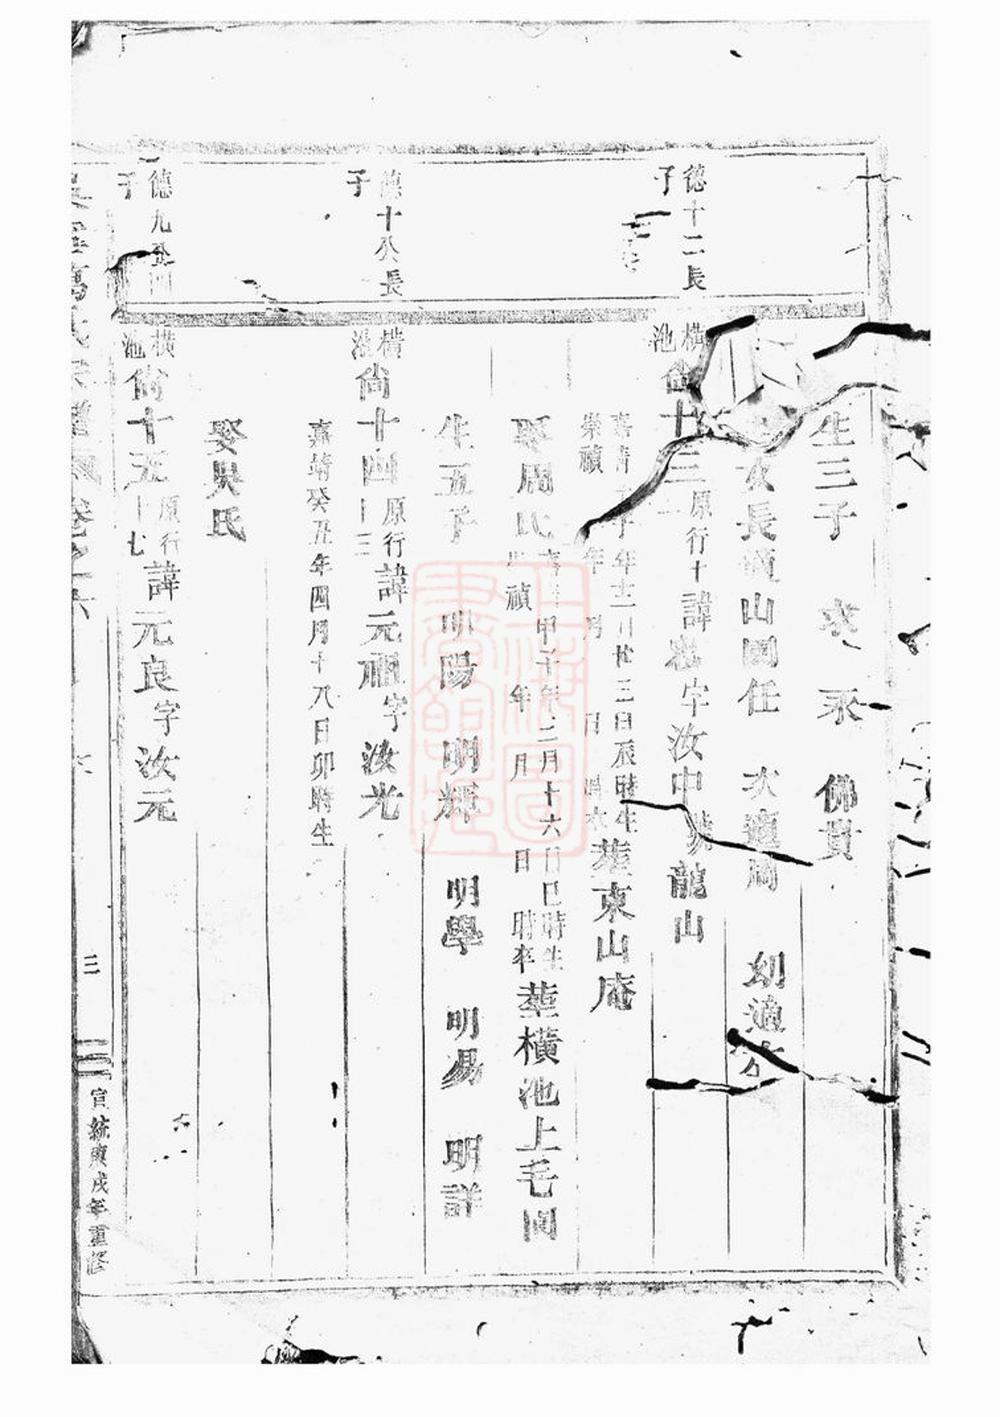 生三子 求 永 佛貴
女長適山園任 次適周 幼適
德十二長
子
橫
池
尙十三
原行十
諱 字汝中號龍山
年十二月 三日辰時生
崇禎 年 月 日 時卒
葬東山庵
娶周氏
甲子年二月十六日巳時生
禎 年 月 日 時卒
葬橫池上毛園
生五子 明陽 明輝 明學 明易 明詳
德十公長
子
橫
池
尙十四
原行
十三
諱元祖字汝光
嘉靖癸丑年四月十八日卯時生
娶吳氏
德九公
子
橫
池
尙十五
原行
十七
諱元良字汝元
氏宗譜 卷之六
三
宣統庚戌年重修
上海圖書館藏